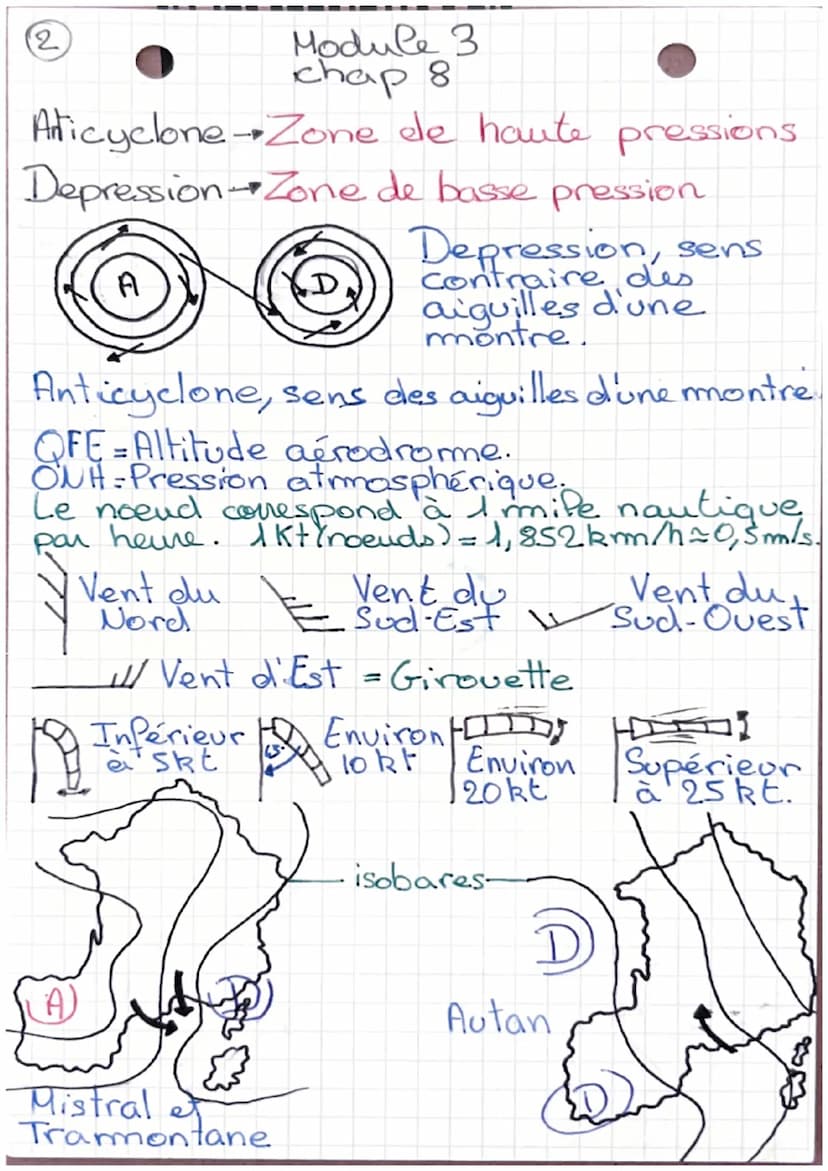 2
Module 3
chap 8
Anticyclone → Zone de haute pressions
Depression → Zone de basse pression
A
D
Depression, sens
contraire des
aiguilles d'une
montre.
Anticyclone, sens des aiguilles d'une montre
QFE = Altitude aérodrome.
QNH = Pression atmosphérique.
Le noeud correspond à 1 mile nautique
par heure. 1Kt (noeuds) = 1,852km/h ≈ 0,5m/s.
Vent du
Nord
Vent du
Sud-Est
Vent du
Sud-Ouest
Vent d'Est = Girouette
Inférieur
à 5kt
45°
Environ
10 kt
Environ
20kt
Supérieur
à 25kt.
isobares
D
A
D
Autan
D
Mistral et
Tramontane